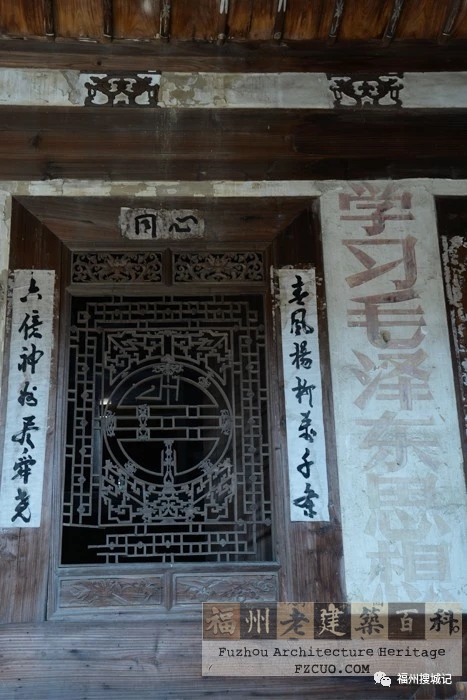 同心
春風楊柳萬千条
六億神州尽舜尧
学习毛泽东思想
福州老建築百科
Fuzhou Architecture Heritage
FZCUO.COM
福州搜城记